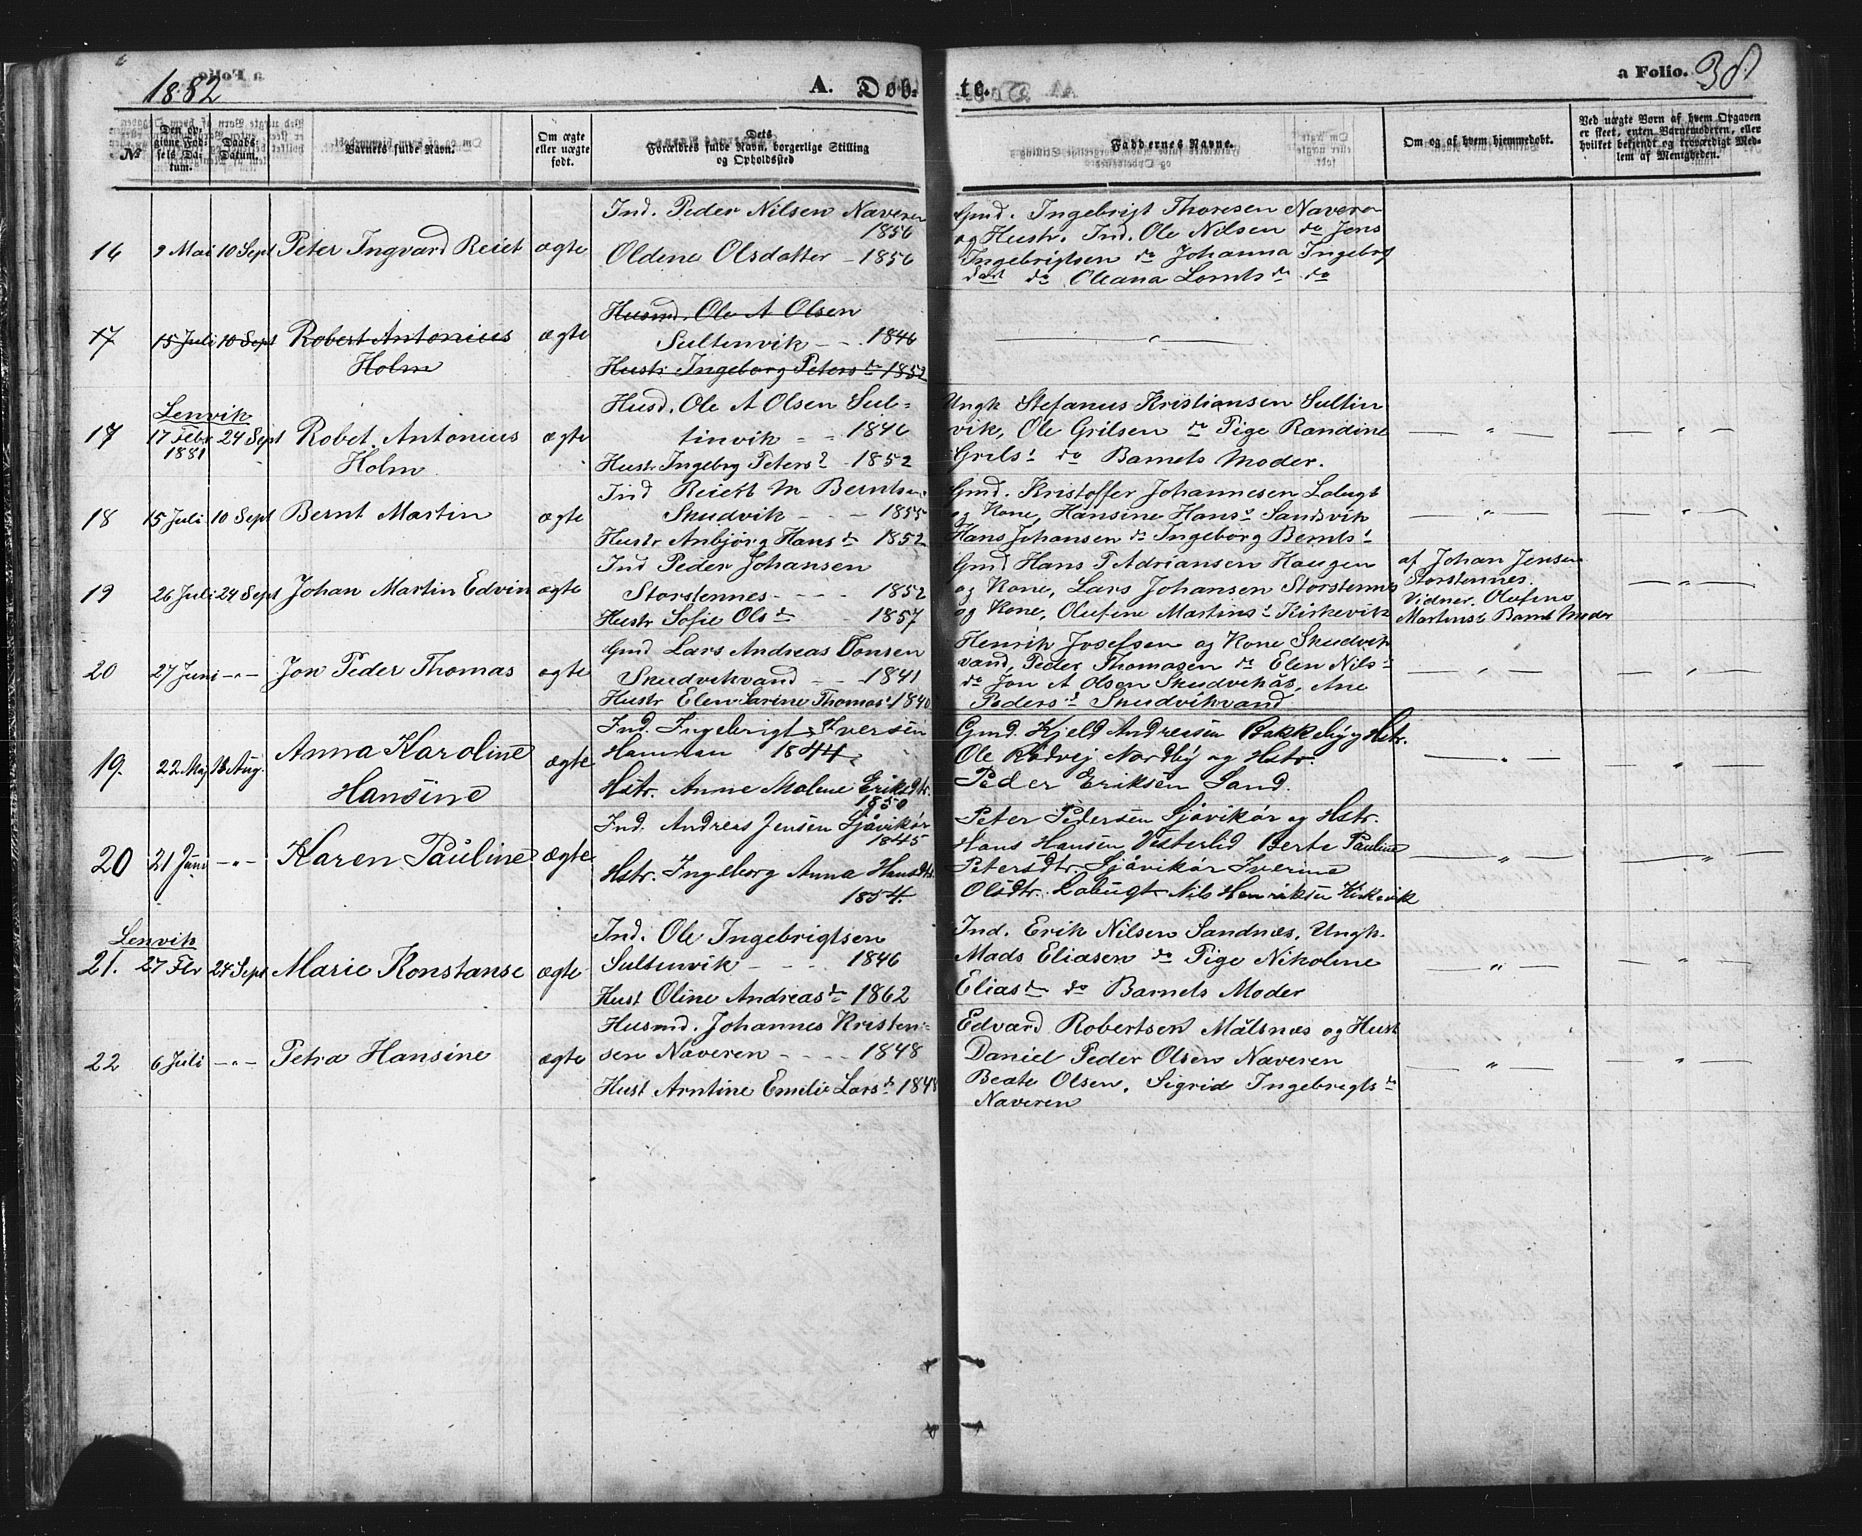 1882
A. Døb-
te.
a Folio. 38.
No
Den op-
givne Fød-
sels Da-
tum.
Daabs
Datum.
Barnets fulde Navn.
Om ægte
eller uægte
født.
Dets
Forældres fulde Navn, borgerlige Stilling
og Opholdssted
Faddernes Navne.
Om og af hvem hjemmedøbt.
Ved uægte Børn af hvem Opgaven
er skeet, enten Barnemoderen, eller
hvilket bekjendt og troværdigt Med-
lem af Menigheden.
16 9 Mai 10 Sept Peter Ingvard Reiet ægte
Ind. Peder Nilsen Naveren
1856
Oldene Olsdatter - 1856
Gmd. Ingebrigt Thoresen Naveren
og Hustr. Ind. Ole Nilsen do Jens
Ingebrigtsen do Johanna Ingebrg
datt do Oleana Lornts dr do
17 15 Juli 10 Sept Robert Antonius
Holm
ægte
Husmd. Ole A Olsen
Sultenvik - - 1846
Hustr Ingeborg Peters dr 1852
— " —
Lenvik
17 17 Febr 24 Sept Robet. Antonius ægte
1881
Holm
Husd. Ole A Olsen Sul-
tinvik - - 1846
Hustr Ingebrg Peters d 1852
Ungk Stefanus Kristiansen Sultin
vik, Ole Grilsen do Pige Randine
Grils d do Barnets Moder.
— " — — " —
18 15 Juli 10 Sept Bernt Martin ægte
Ind Reiett M Berntsen
Skudvik - - - 1855
Hustr Anbjørg Hans dr 1852
Gmd. Kristoffer Johannesen Labugt
og Kone, Hansine Hans d Sandsvik
Hans Johansen do Ingeborg Bernts d
— " — — " —
19 26 Juli 24 Sept Johan Martin Edvin ægte
Ind Peder Johansen
Storstennes - - - - 1852
Hustr Sofie Ols dr - - 1857
Gmd Hans P Adriansen Haugen
og Kone, Lars Johansen Storstennes
og Kone, Olufine Martins d Kirkevik
af Johan Jensen
Storstennes.
Vidner. Olufine
Martinsd Barnets Moder
— " —
20 27 Juni -"- Jon Peder Thomas ægte
Gmd Lars Andreas Tonsen
Skudvikvand - - 1841
Hustr Elen Sarine Thomas d 1840
Henrik Josefsen og Kone Skudvik
vand, Peder Thomasen do Elen Nils d
do Jon A Olsen Skudvikås, Ane
Peders d Skudvikvand
— " — — " —
19. 22 Maj 13 Aug. Anna Karoline
Hansine
ægte
Ind. Ingebrigt Iversen
Hamnan 1844.
Hstr. Anne Malene Eriksdtr.
1850
Gmd. Kjeld Andreasen Bakkeby og Hstr.
Ole Rödvej Nordby og Hstr.
Peder Eriksen Sand.
— " — — " —
20 21 Juni -"- Karen Pauline ægte
Ind. Andreas Jensen Sjåvikør
1845
Hstr. Ingeborg Anna Hansdtr.
1854.
Peter Pedersen Sjåvikør og Hstr.
Hans Hansen Vesterlid Berte Pauline
Petersdtr. Sjåvikør Iverine
Olsdtr. Labugt Nils Henriksen Kirkevik
— " — — " —
Lenvik
21. 27 Fbr 24 Sept Marie Konstanse ægte
Ind. Ole Ingebrigtsen
Sultenvik - - - 1846
Hust Oline Andreas dr 1862
Ind. Erik Nilsen Sandnæs. Ungk.
Mads Eliasen do Pige Nikoline
Elias dr do Barnets Moder
— " — — " —
22 6 Juli -"- Petra Hansine ægte
Husmd. Johannes Kristen-
sen Naveren - - - 1848
Hust Arntine Emilie Lars d 1848
Edvard Robertsen Målsnæs og Hust
Daniel Peder Olsen Naveren
Beate Olsen. Sigrid Ingebrigts dr
Naveren
— " — — " —